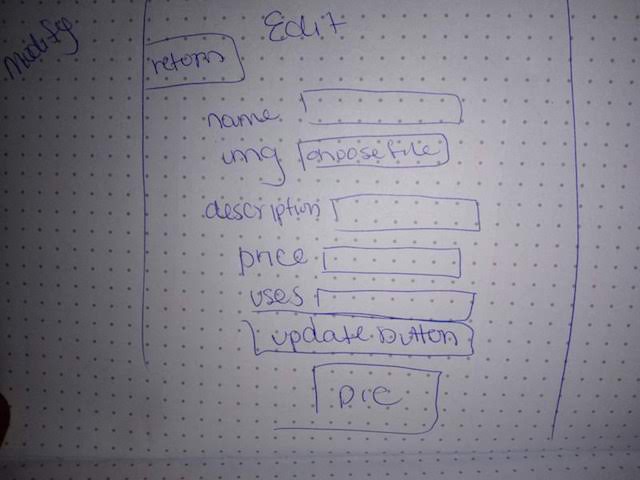 Modify
Edit
return
name
img choose file
description
price
uses
update button
pic